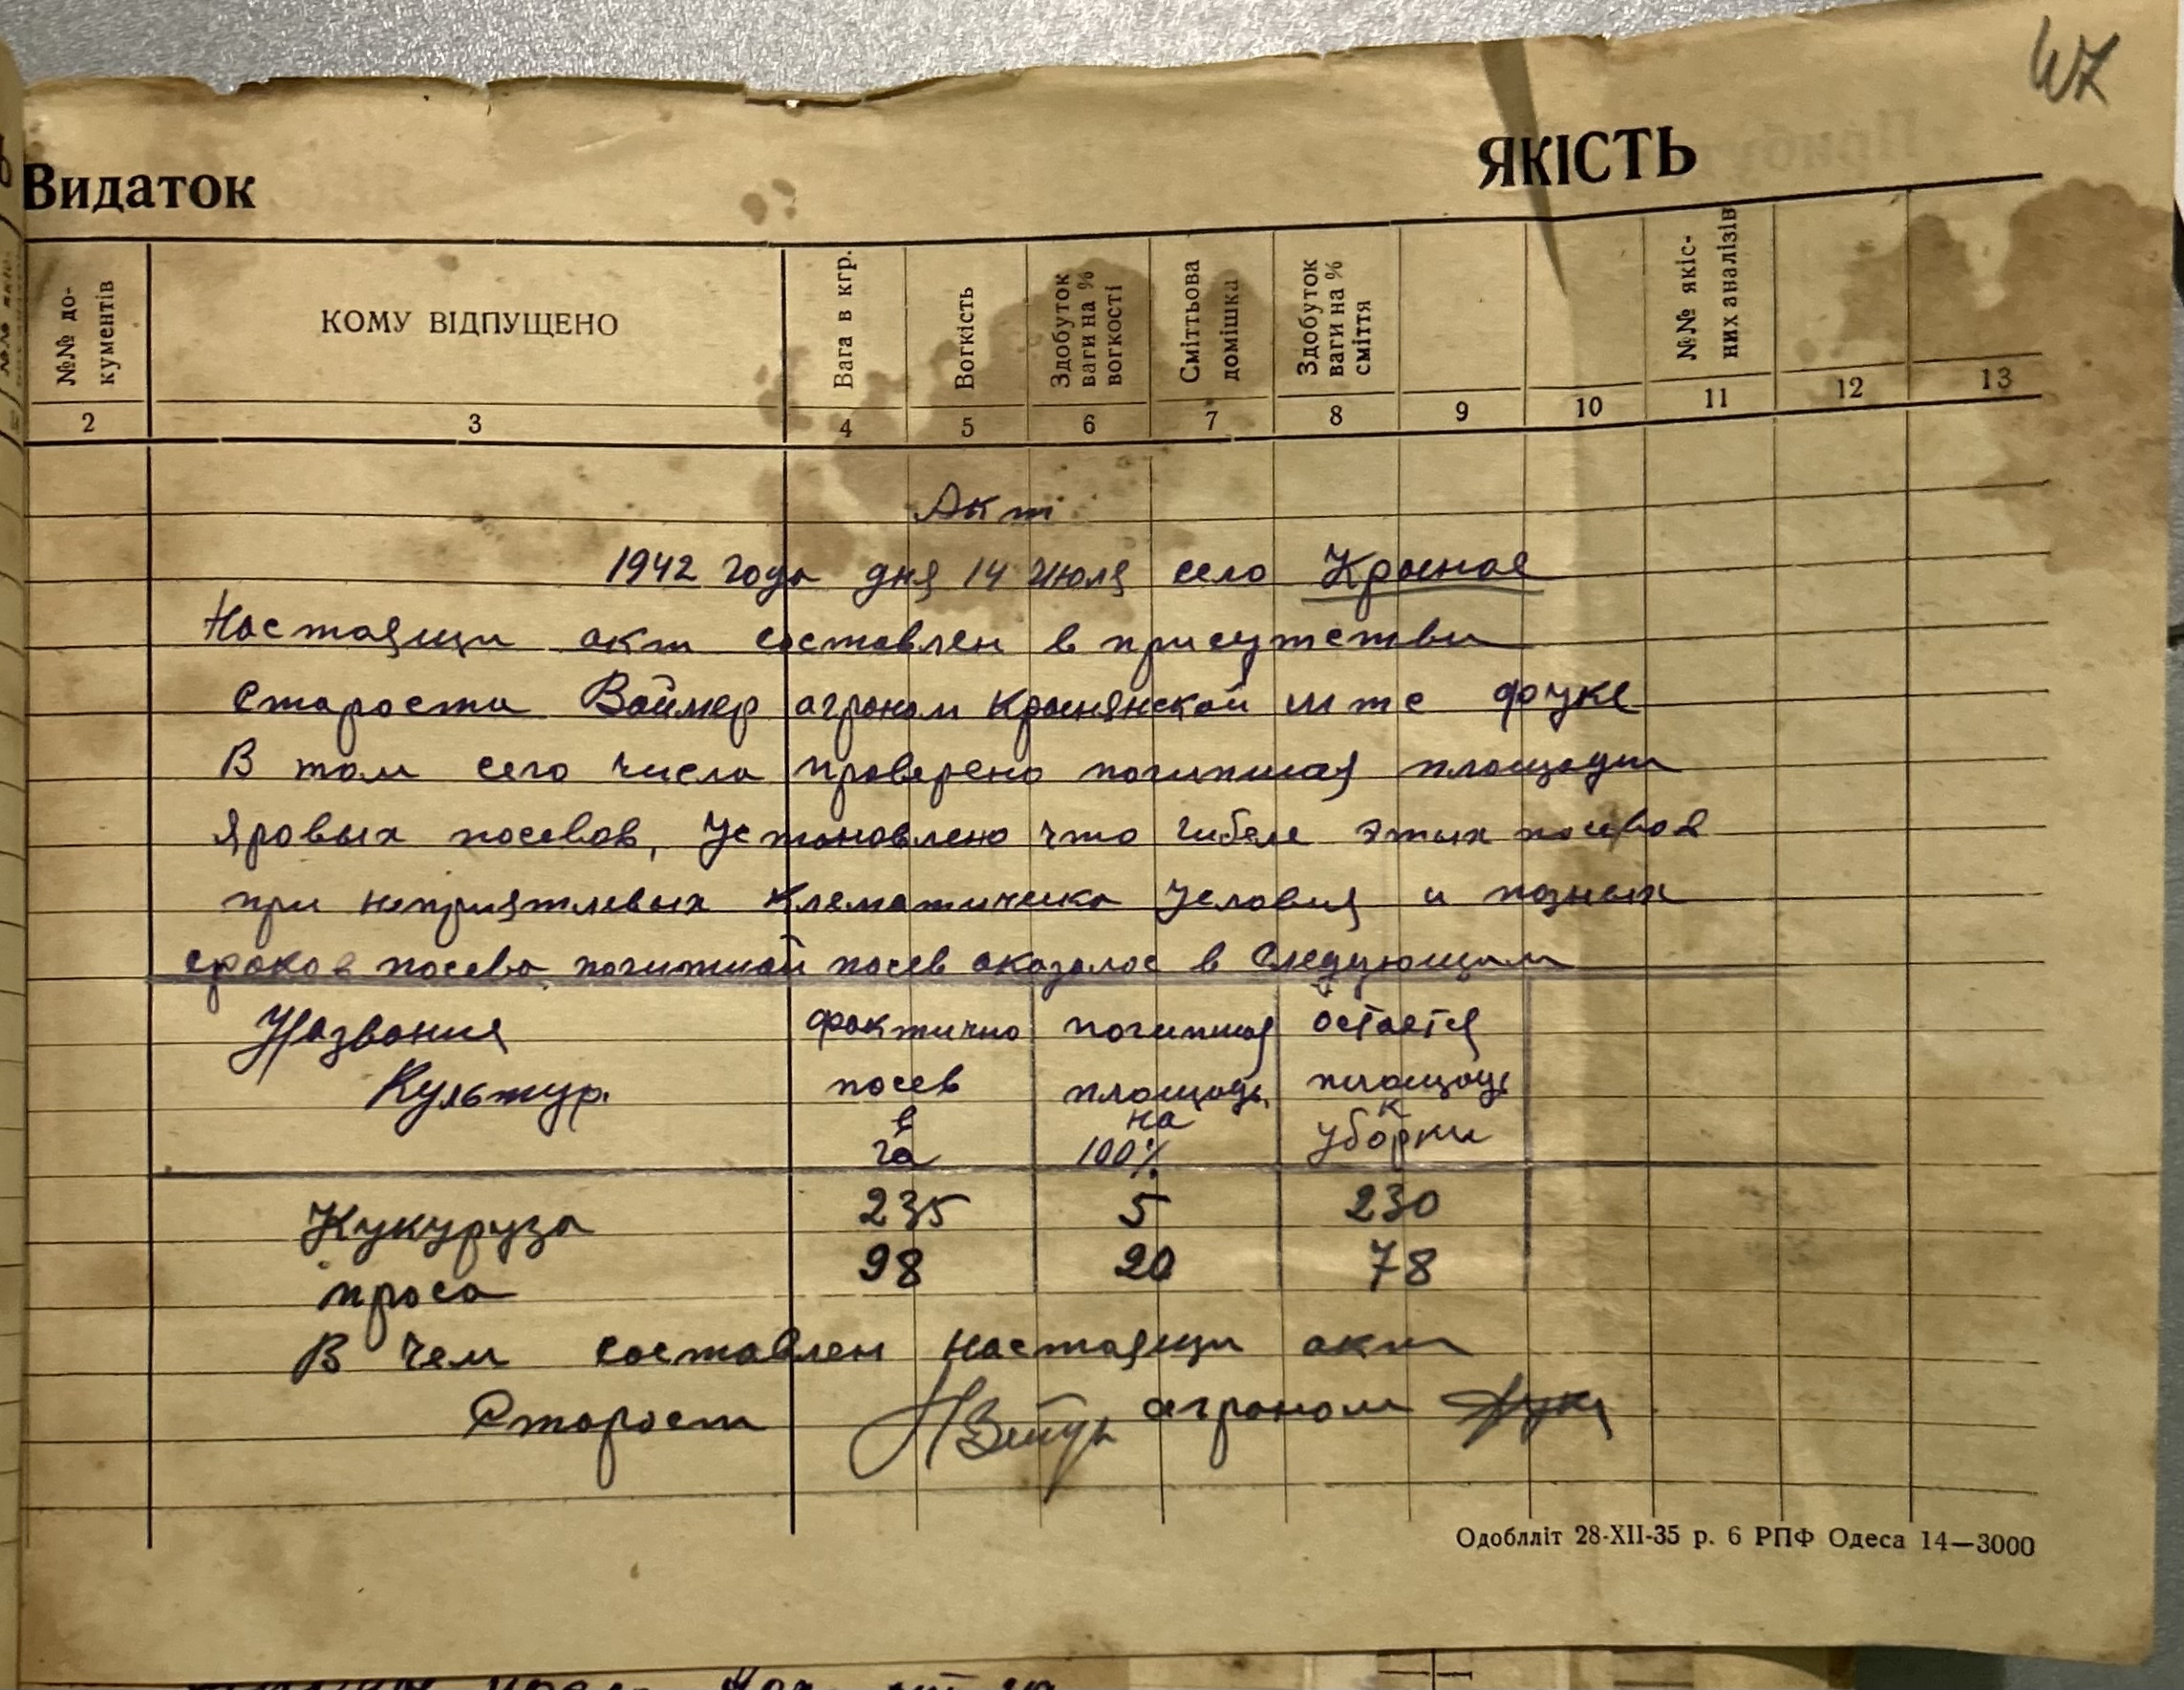 Видаток
ЯКІСТЬ
№№ до-
кументів
КОМУ ВІДПУЩЕНО
Вага в кгр.
Вогкість
Здобуток
ваги на %
вогкості
Сміттьова
домішка
Здобуток
ваги на %
сміття
№№ якіс-
них аналізів
2 3 4 5 6 7 8 9 10 11 12 13
Акт
1942 года дня 14 Июля село Красное
Настоящи акт составлен в присутстви
Староста Ваймер агроном Краснянской мтс фуке
В том сего числа проверено погипшая площади
Яровых посевов, Установлено что гибеле этых посевов
при неприятлевых Клематическа Условия и позных
сроков посева погипшай посев оказалос в Следующим
Названия фактично погипшая остается
Культур. посев площадь площадь
в на к
га 100% уборки
Кукуруза 235 5 230
проса 98 20 78
В чем составлен настоящи акт
Старост агроном
Одоблліт 28-XII-35 р. 6 РПФ Одеса 14—3000